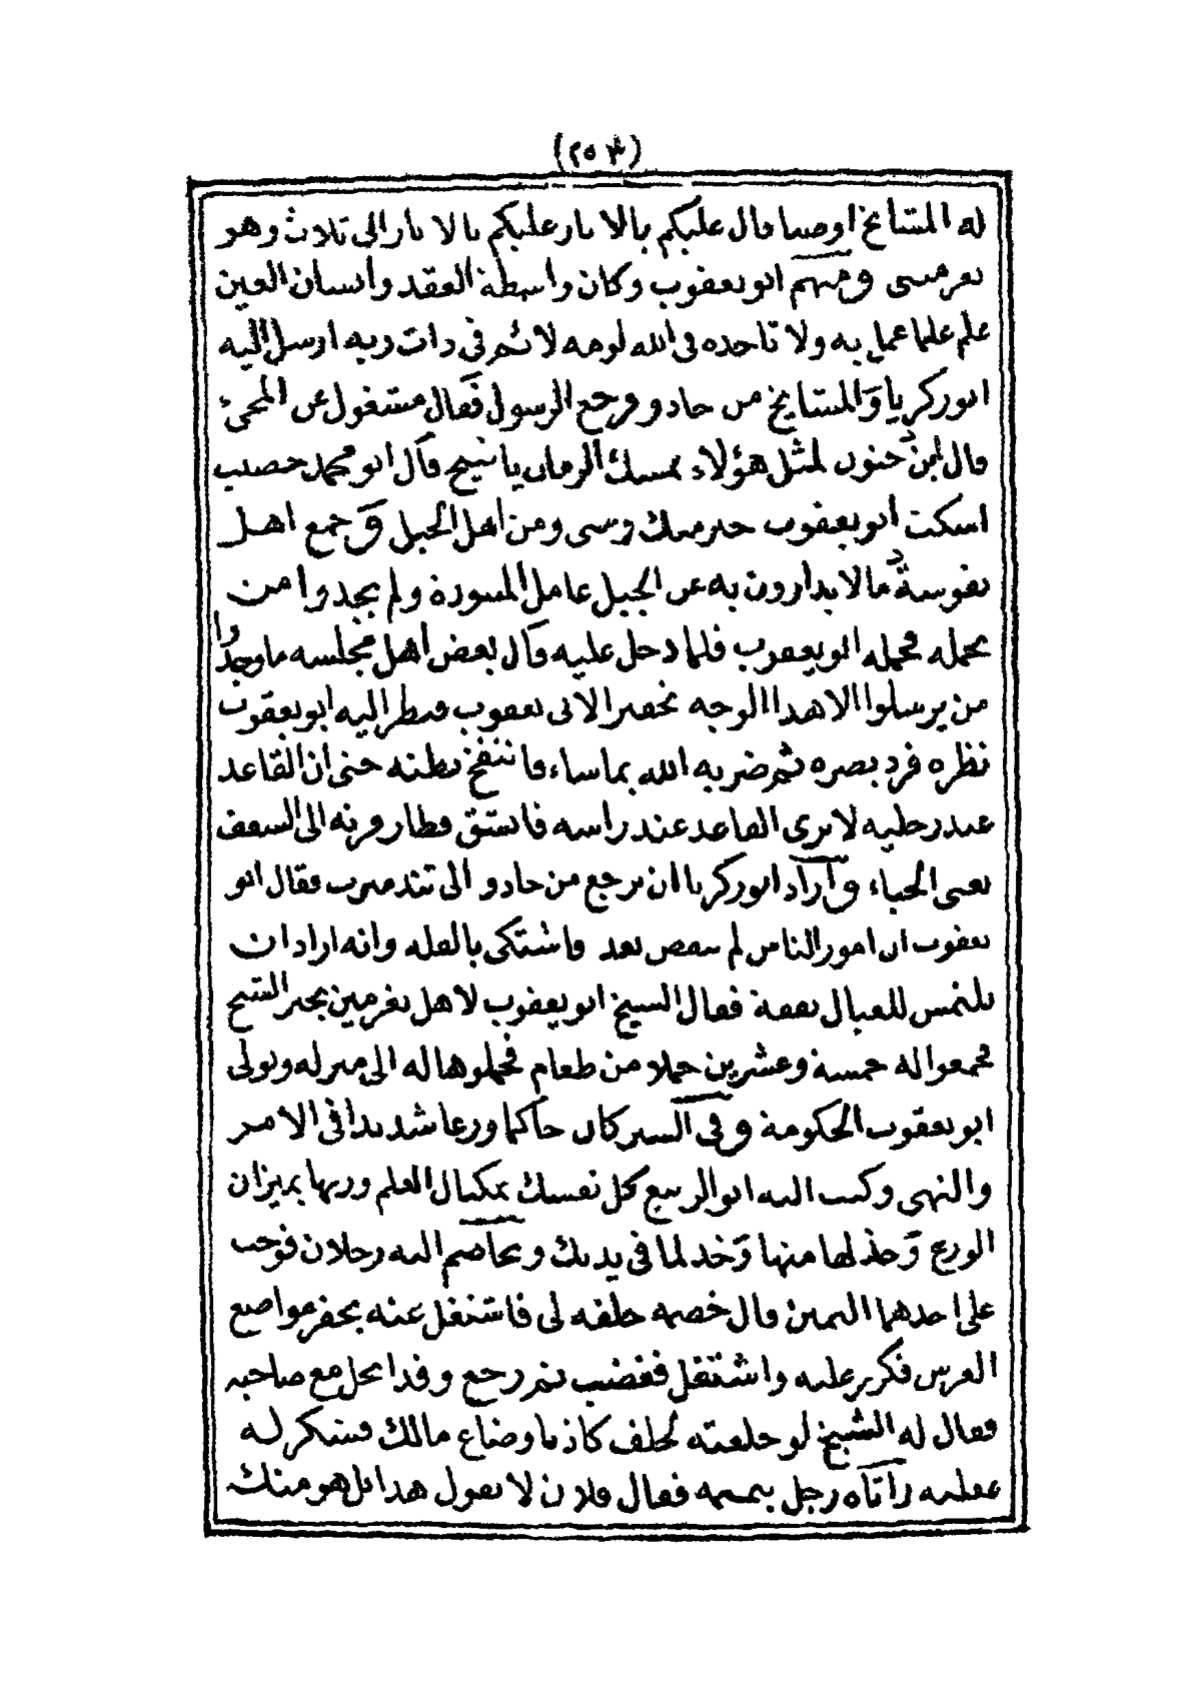 (٢٥٣)
له المشايخ اوصنا قال عليكم بالاثار عليكم بالاثار الى ثلاث وهو
نفرميسى ومنهم ابو يعقوب وكان واسطة العقد وانسان العين
علم علما عمل به ولا تاخذه في الله لومة لائم في ذات ربه ارسل اليه
ابو زكرياء والمشايخ من جادو ورجع الرسول فقال مشغول عن المجئ
قال ابن جنون لمثل هؤلاء يمسك الزمان يا شيخ قال ابو محمد خصيب
اسكت ابو يعقوب خير منك ومنى ومن اهل الجبل وجمع اهل
نفوسة مالا يدارون به عن الجبل عامل المسودة ولم يجدوا من
يحمله فحمله ابو يعقوب فلما دخل عليه قال بعض اهل مجلسه ما وجدوا
من يرسلوا الا هذا الوجه تحقيرا لابى يعقوب فنظر اليه ابو يعقوب
نظره فرد بصره ثم ضربه الله بما شاء فانتفخ بطنه حتى ان القاعد
عند رجليه لا يرى القاعد عند راسه فانشق وطار فرثه الى السقف
يعنى الخباء واراد ابو زكريا ان يرجع من جادو الى تندميرت فقال ابو
يعقوب ان امور الناس لم تنقض بعد فاشتكى بالقلة وانه اراد ان
يلتمس للعيال نفقة فقال الشيخ ابو يعقوب لاهل نفرمين بخبر الشيخ
فجمعوا له خمسة وعشرين حملا من طعام فحملوها له الى منزله وتولى
ابو يعقوب الحكومة وفي السير كان حاكما ورعا شديدا في الامر
والنهى وكتب اليه ابو الربيع كل نفسك بمكيال العلم وزنها بميزان
الورع وخذ لها منها وخذ لما في يديك وتخاصم اليه رجلان فوجب
على احدهما اليمين قال خصمه حلفه لى فاشتغل عنه بحفر مواضع
الغرس فكرر عليه واشتغل فغضب ثم رجع وقد انحل مع صاحبه
فقال له الشيخ لو حلفته لحلف كاذبا وضاع مالك فشكر له
عقله واتاه رجل بيتيمه فقال فلان لا يقول هذا بل هو منك